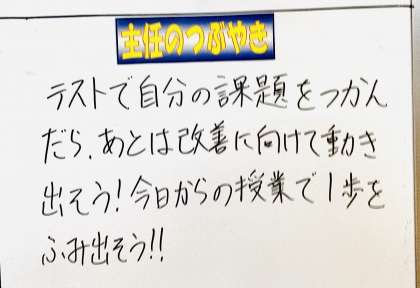 主任のつぶやき
テストで自分の課題をつかん
だら、あとは改善に向けて動き
出そう!今日からの授業で1歩を
ふみ出そう!!